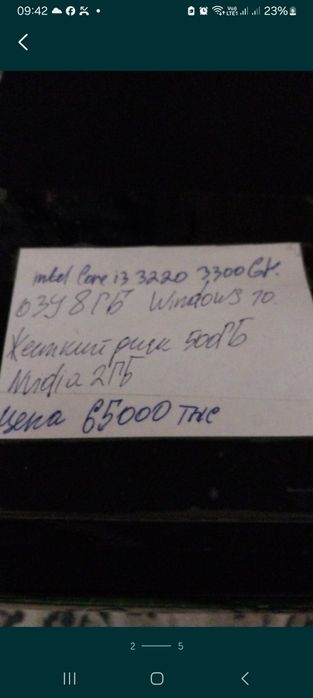 09:42
Vo) LTE1 23%
intel Core i3 3220 3300 GH.
ОЗУ 8ГБ Windows 10
Жесткий диск 500ГБ
Nvidia 2ГБ
Цена 65000 тнс
2 — 5